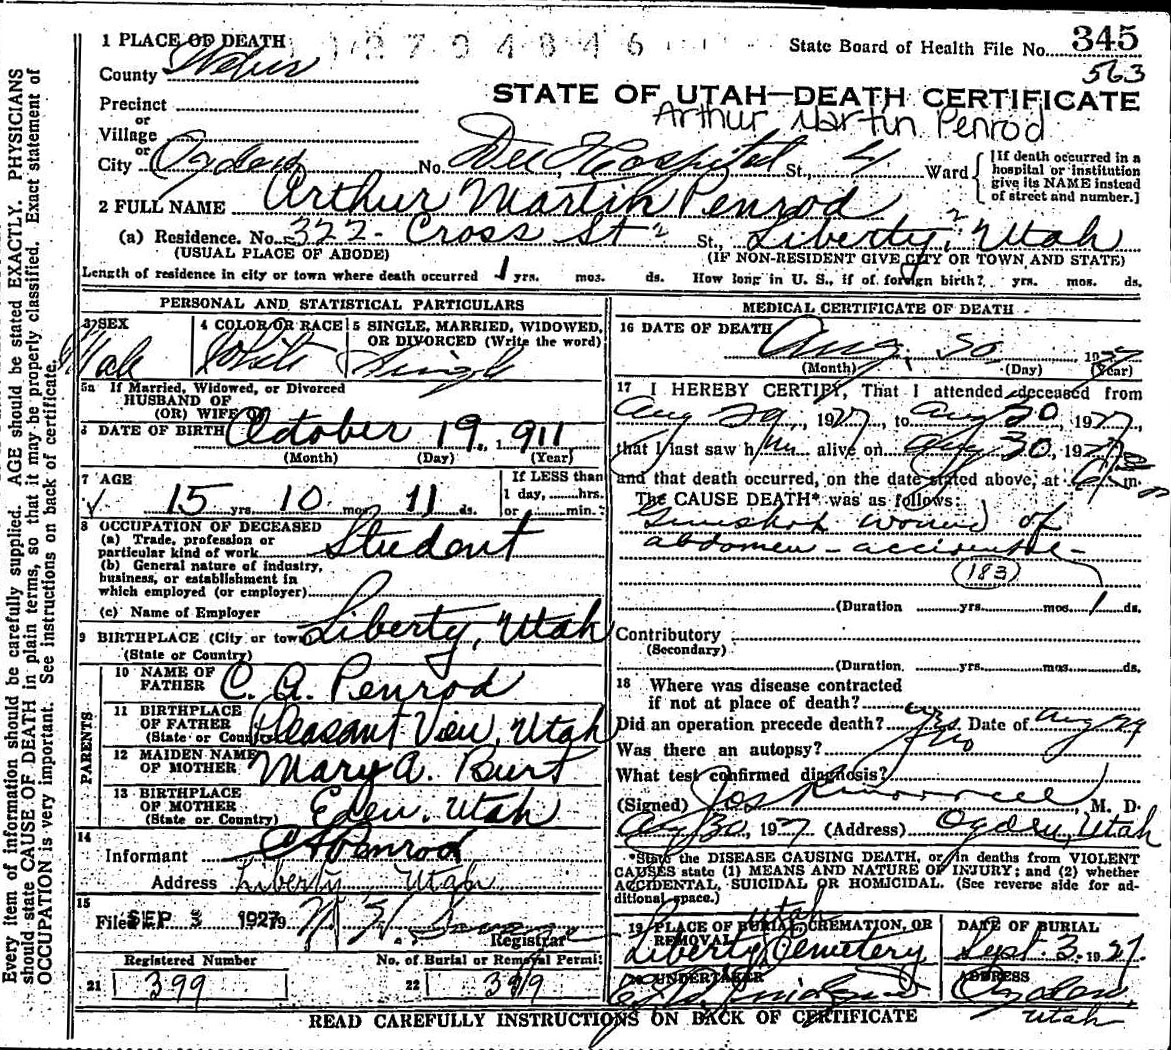 1 PLACE OF DEATH
State Board of Health File No. 345
County Weber
563
STATE OF UTAH—DEATH CERTIFICATE
Precinct
or
Arthur Martin Penrod
Village
or
City Ogden No. Dee Hospital St., 4 Ward
[If death occurred in a hospital or institution give its NAME instead of street and number.]
2 FULL NAME Arthur Martin Penrod
(a) Residence. No. 322 - Cross St St., Liberty, Utah
(USUAL PLACE OF ABODE) (IF NON-RESIDENT GIVE CITY OR TOWN AND STATE)
Length of residence in city or town where death occurred 1 yrs. mos. ds. How long in U. S., if of foreign birth? yrs. mos. ds.
PERSONAL AND STATISTICAL PARTICULARS
3 SEX
Male
4 COLOR OR RACE
White
5 SINGLE, MARRIED, WIDOWED, OR DIVORCED (Write the word)
Single
5a If Married, Widowed, or Divorced
HUSBAND OF
(OR) WIFE OF
6 DATE OF BIRTH October 19, 1911
(Month) (Day) (Year)
7 AGE
15 yrs. 10 mos. 11 ds.
If LESS than
1 day, hrs.
or min.
8 OCCUPATION OF DECEASED
(a) Trade, profession or
particular kind of work Student
(b) General nature of industry,
business, or establishment in
which employed (or employer)
(c) Name of Employer
9 BIRTHPLACE (City or town) Liberty, Utah
(State or Country)
PARENTS
10 NAME OF FATHER C. A. Penrod
11 BIRTHPLACE OF FATHER Pleasant View, Utah
(State or Country)
12 MAIDEN NAME OF MOTHER Mary A. Burt
13 BIRTHPLACE OF MOTHER Eden, Utah
(State or Country)
14
Informant C A Penrod
Address Liberty, Utah
15
Filed SEP 3 1927
Registrar
Registered Number No. of Burial or Removal Permit
21 399 22 399
MEDICAL CERTIFICATE OF DEATH
16 DATE OF DEATH
Aug. 30 1927
(Month) (Day) (Year)
17 I HEREBY CERTIFY, That I attended deceased from
Aug 29, 1927, to Aug 30, 1927,
that I last saw him alive on Aug 30, 1927
and that death occurred, on the date stated above, at m.
The CAUSE DEATH* was as follows:
Gunshot wound of
abdomen - accidental -
183
(Duration yrs. mos. 1 ds.
Contributory
(Secondary)
(Duration yrs. mos. ds.
18 Where was disease contracted
if not at place of death?
Did an operation precede death? yes Date of Aug 29
Was there an autopsy? No
What test confirmed diagnosis?
(Signed) Jos M. D.
Aug 30, 1927 (Address) Ogden, Utah
*State the DISEASE CAUSING DEATH, or in deaths from VIOLENT
CAUSES state (1) MEANS AND NATURE OF INJURY; and (2) whether
ACCIDENTAL, SUICIDAL OR HOMICIDAL. (See reverse side for additional space.)
19 PLACE OF BURIAL, CREMATION, OR REMOVAL
Utah
Liberty Cemetery
DATE OF BURIAL
Sept. 3. 1927.
20 UNDERTAKER
ADDRESS
Ogden, Utah
READ CAREFULLY INSTRUCTIONS ON BACK OF CERTIFICATE
Every item of information should be carefully supplied. AGE should be stated EXACTLY. PHYSICIANS
should state CAUSE OF DEATH in plain terms, so that it may be properly classified. Exact statement of
OCCUPATION is very important. See instructions on back of certificate.